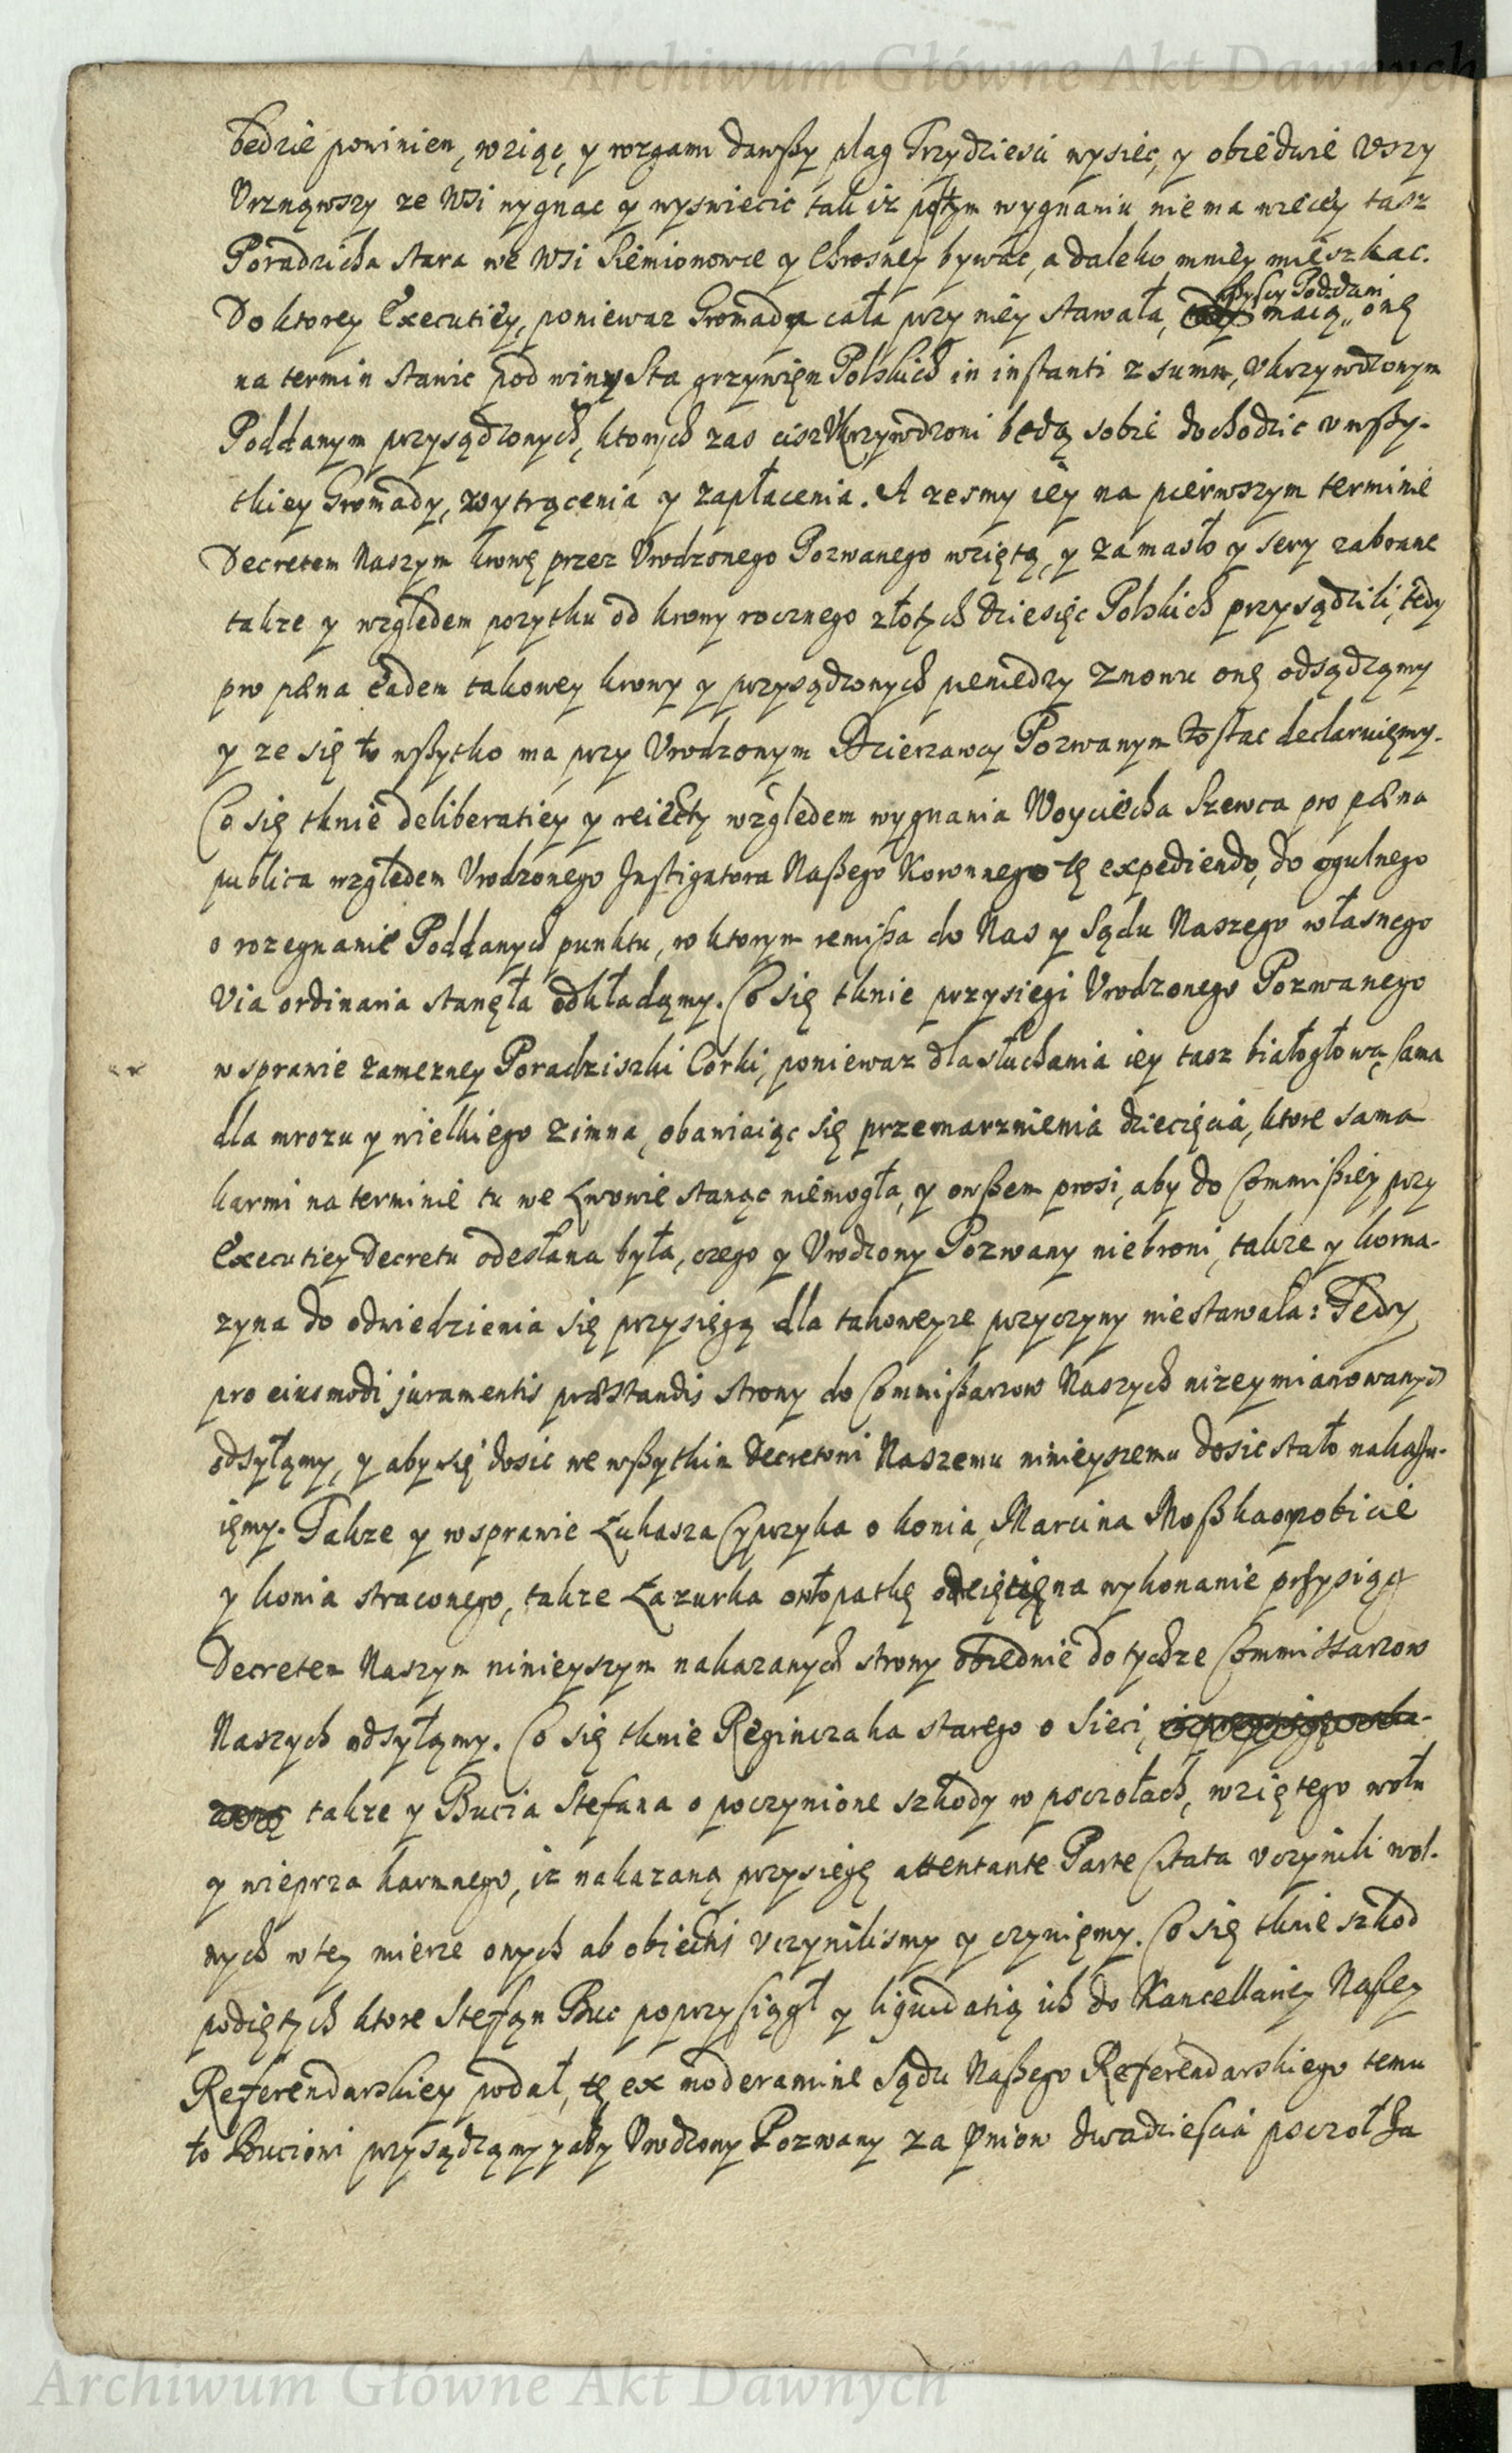 Archiwum Główne Akt Dawnych
będzie powinien, wziąc, y rozgami dawszy plag Trzydziesci wysiec, y obiedwie Vszy
Vrznąwszy ze Wsi wygnac y wyswiecic tak iz po tym wygnaniu nie ma więcey tasz
Poradzicha stara we Wsi Siemionowce y Chrosney bywac, a daleko mniey mieszkac.
Do ktorey Executiey, poniewaz Gromada cała przy niey stawała, wszyscy Poddani maią onę
na termin stawic pod winą sta grzywien Polskich in instanti z summ, Vkrzywdzonym
Poddanym przysądzonych, ktorych zas cisz Vkrzywdzeni będą sobie dochodzic v wszy-
tkiey Gromady, wytrącenia y zapłacenia. A zesmy iey na pierwszym terminie
Decretem Naszym krowę przez Vrodzonego Pozwanego wziętą, y za masło y sery zabrane
takze y względem pozytku od krowy rocznego złotych dziesięc Polskich przysądzili, tedy
pro pæna eadem takowey krowy y przysądzonych pieniedzy znowu onę odsądzamy
y ze się to wszytko ma przy Vrodzonym Dzierzawcy Pozwanym zostac declaruięmy.
Co się tknie deliberatiey y reiecty względem wygnania Woyciecha Szewca pro pæna
publica względem Vrodzonego Instigatora Naszego Koronnego tę expediendo, do ogulnego
o rozegnanie Poddanych punktu, w ktorym remissa do Nas y Sądu Naszego własnego
Via ordinaria stanęła odkładamy. Co się tknie przysiegi Vrodzonego Pozwanego
w sprawie zamezney Poradziszki Corki, poniewaz dla słuchania iey tasz białogłowa sama
dla mrozu y wielkiego zimna, obawiaiąc się przemarznienia dziecięcia, ktore sama
karmi na terminie tu we Lwowie stanąc niemogła, y owszem prosi, aby do Commissiey przy
Executiey Decretu odesłana była, czego y Vrodzony Pozwany niebroni, takze y
do odwiedzienia się przysięgą dla takoweyze przyczyny niestawała: Tedy
pro eiusmodi juramentis præstandis strony do Commissarzow Naszych nizey mianowanych
odsyłamy, y aby się dosic we wszytkim Decretowi Naszemu ninieyszemu dosic stało nakazu-
ięmy. Takze y w sprawie Łukasza Cypryka o konia, Marcina Moszka o pobicie
y konia straconego, takze Łazurka o łopatkę odciętą na wykonanie przysiąg
Decretem Naszym ninieyszym nakazanych strony obiedwie do tychze Commissarzow
Naszych odsyłamy. Co się tknie Reginczaka starego o sieci,
takze y Bucia Stefana o poczynione szkody w pszczołach, wziętego wołu
y wieprza karmnego, iz nakazaną przysięgę attentante Parte Citata vczynili wol-
nych w tey mierze onych ab obiectis vczynilismy y czynięmy. Co się tknie szkod
podiętych ktore Stefan Buc poprzysiągł y liquidatią ich do Kancellariey Naszey
Referendarskiey podał, tę ex moderamine Sądu Naszego Referendarskiego temu
to Buciowi przysądzamy y aby Vrodzony Pozwany za pniow dwadziescia pszczoł
Archiwum Główne Akt Dawnych